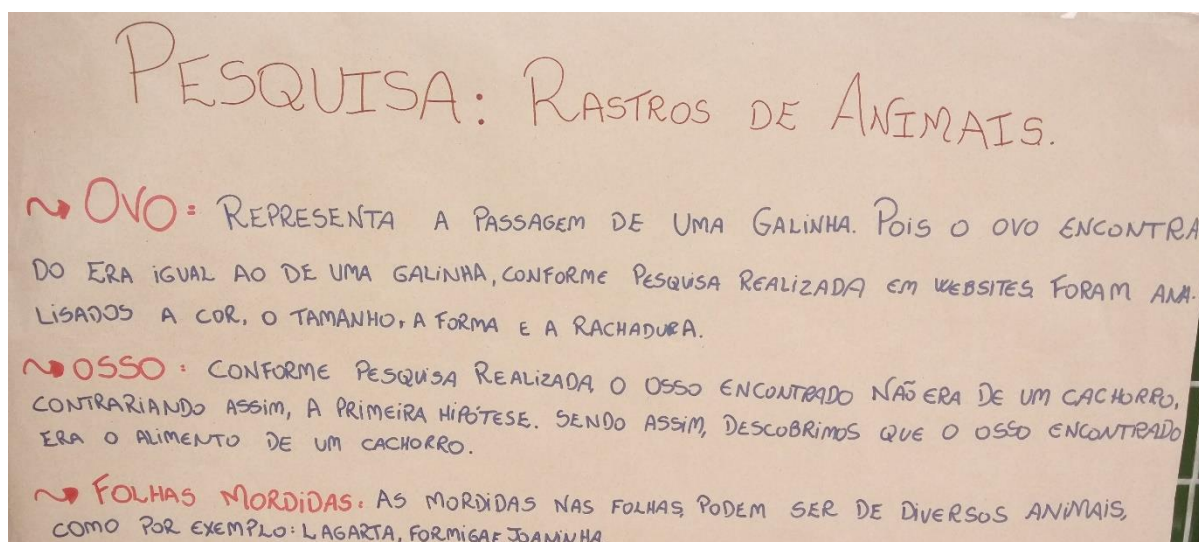 PESQUISA: RASTROS DE ANIMAIS.
~> OVO: REPRESENTA A PASSAGEM DE UMA GALINHA. POIS O OVO ENCONTRA
DO ERA IGUAL AO DE UMA GALINHA, CONFORME PESQUISA REALIZADA EM WEBSITES. FORAM ANA-
LISADOS A COR, O TAMANHO, A FORMA E A RACHADURA.
~> OSSO: CONFORME PESQUISA REALIZADA, O OSSO ENCONTRADO NÃO ERA DE UM CACHORRO,
CONTRARIANDO ASSIM, A PRIMEIRA HIPÓTESE. SENDO ASSIM, DESCOBRIMOS QUE O OSSO ENCONTRADO
ERA O ALIMENTO DE UM CACHORRO.
~> FOLHAS MORDIDAS: AS MORDIDAS NAS FOLHAS, PODEM SER DE DIVERSOS ANIMAIS,
COMO POR EXEMPLO: LAGARTA, FORMIGA E JOANINHA